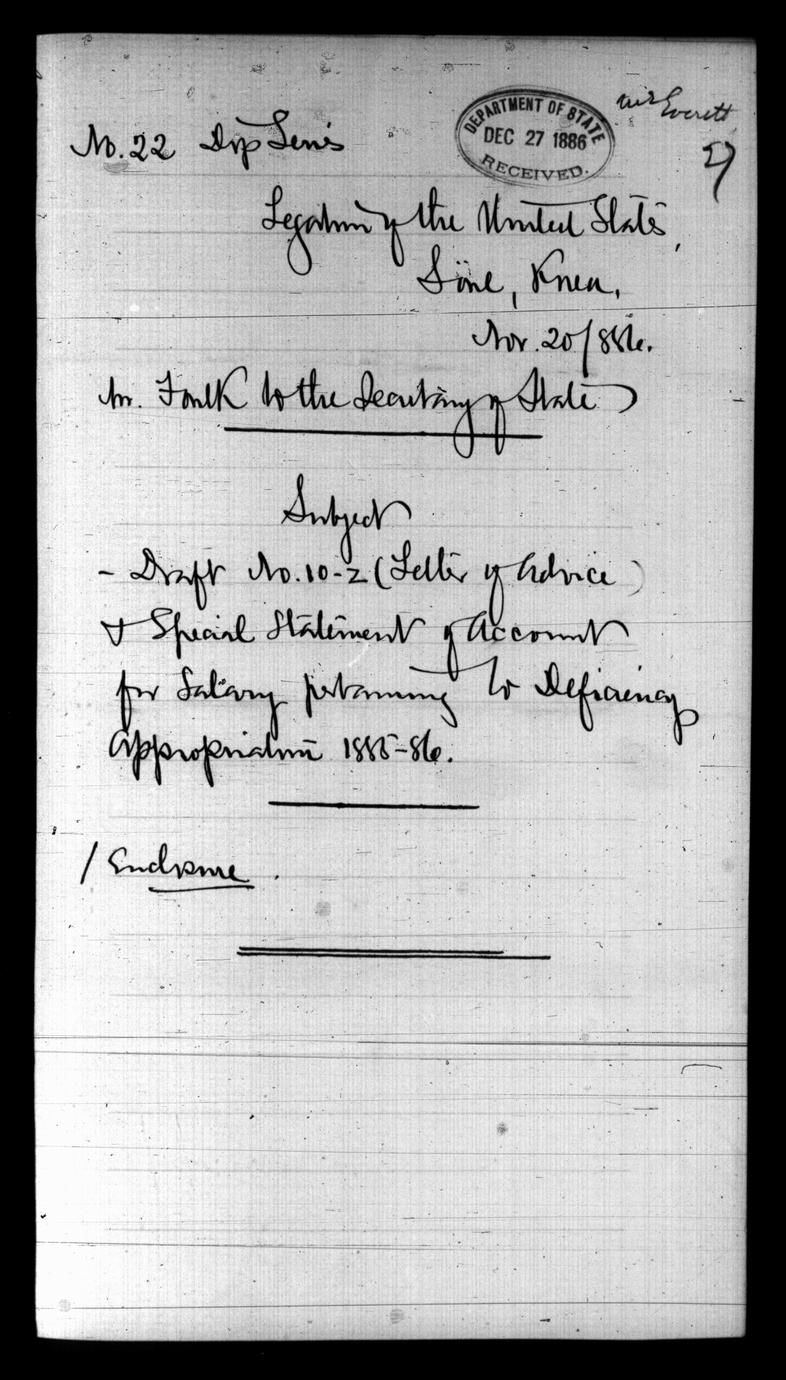 No. 22 Dip Series
DEPARTMENT OF STATE
DEC 27 1886
RECEIVED.
Mr Everett
Legation of the United States,
Söul, Korea,
Nov. 20/886.
Mr. Foulk to the Secretary of State
Subject
- Draft No. 10-2 (Letter of Advice)
& Special Statement of Account
for Salary pertaining to Deficiency
Appropriation 1885-86.
1 Enclosure.